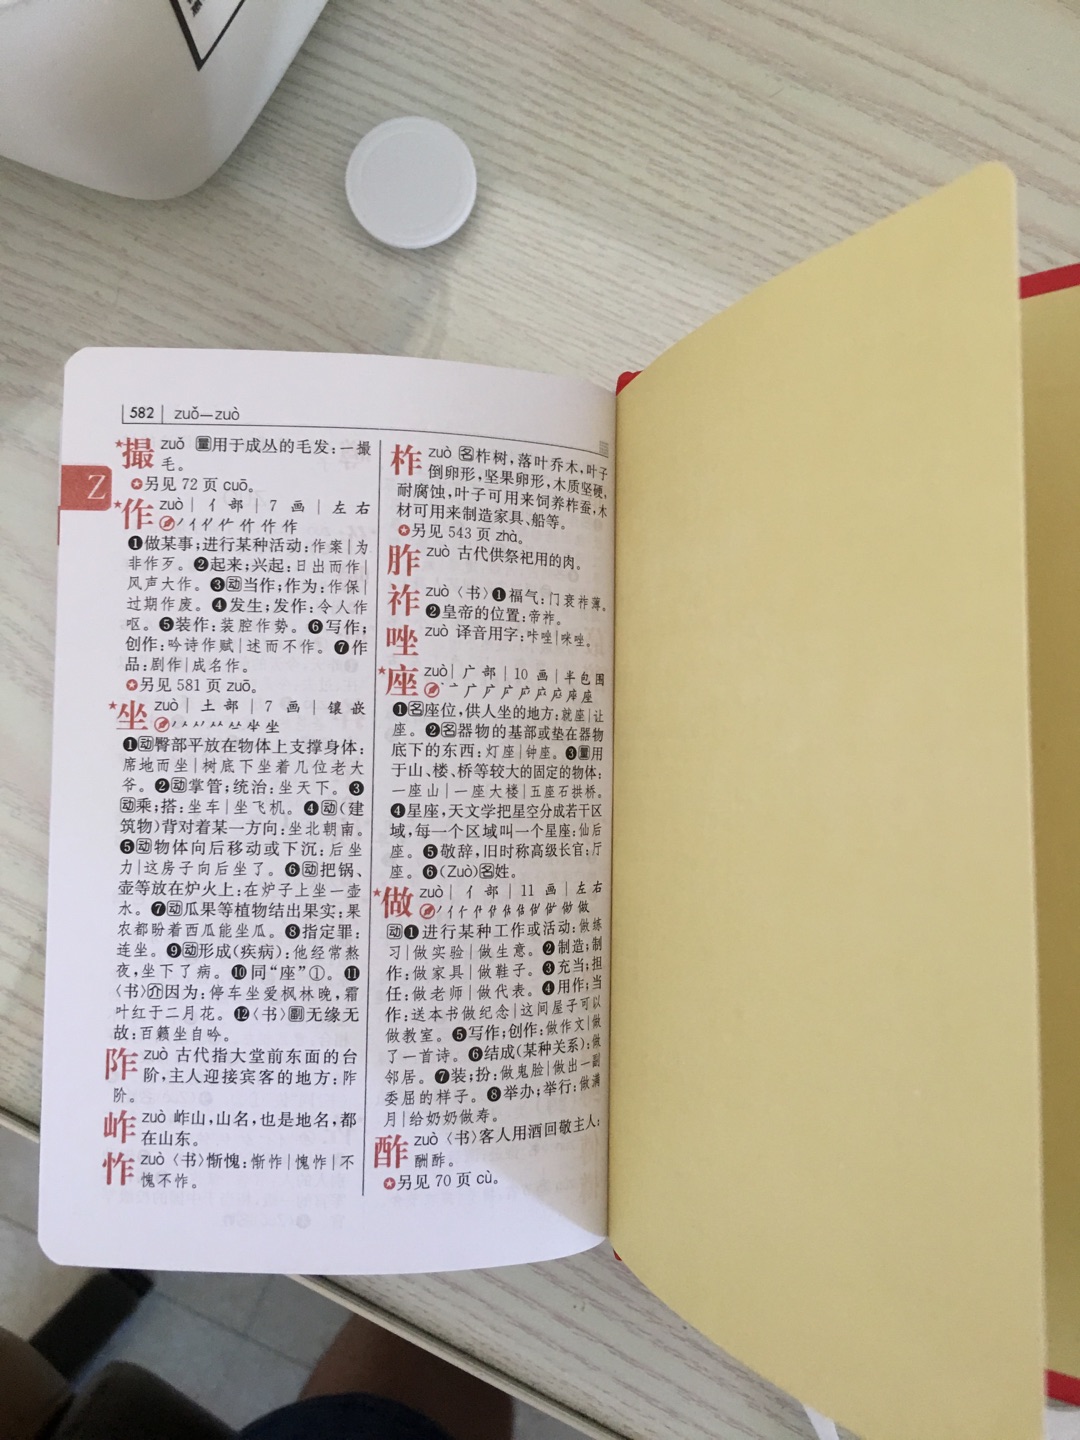 582 zuǒ—zuò
★撮 zuǒ 量用于成丛的毛发:一撮
毛。
✪另见 72 页 cuō。
Z
★作 zuò | 亻部 | 7 画 | 左右
❶做某事;进行某种活动:作案|为
非作歹。❷起来;兴起:日出而作|
风声大作。❸动当作;作为:作保|
过期作废。❹发生;发作:令人作
呕。❺装作:装腔作势。❻写作;
创作:吟诗作赋|述而不作。❼作
品:剧作|成名作。
✪另见 581 页 zuō。
★坐 zuò | 土部 | 7 画 | 镶嵌
❶动臀部平放在物体上支撑身体:
席地而坐|树底下坐着几位老大
爷。❷动掌管;统治:坐天下。❸
动乘;搭:坐车|坐飞机。❹动(建
筑物)背对着某一方向:坐北朝南。
❺动物体向后移动或下沉:后坐
力|这房子向后坐了。❻动把锅、
壶等放在炉火上:在炉子上坐一壶
水。❼动瓜果等植物结出果实:果
农都盼着西瓜能坐瓜。❽指定罪:
连坐。❾动形成(疾病):他经常熬
夜,坐下了病。❿同“座”①。⓫
〈书〉介因为:停车坐爱枫林晚,霜
叶红于二月花。⓬〈书〉副无缘无
故:百籁坐自吟。
阼 zuò 古代指大堂前东面的台
阶,主人迎接宾客的地方:阼
阶。
岞 zuò 岞山,山名,也是地名,都
在山东。
怍 zuò〈书〉惭愧:惭怍|愧怍|不
愧不怍。
柞 zuò 名柞树,落叶乔木,叶子
倒卵形,坚果卵形,木质坚硬,
耐腐蚀,叶子可用来饲养柞蚕,木
材可用来制造家具、船等。
✪另见 543 页 zhà。
胙 zuò 古代供祭祀用的肉。
祚 zuò〈书〉❶福气:门衰祚薄。
❷皇帝的位置:帝祚。
唑 zuò 译音用字:咔唑|咪唑。
★座 zuò | 广部 | 10 画 | 半包围
❶名座位,供人坐的地方:就座|让
座。❷名器物的基部或垫在器物
底下的东西:灯座|钟座。❸量用
于山、楼、桥等较大的固定的物体:
一座山|一座大楼|五座石拱桥。
❹星座,天文学把星空分成若干区
域,每一个区域叫一个星座:仙后
座。❺敬辞,旧时称高级长官:厅
座。❻(Zuò)名姓。
★做 zuò | 亻部 | 11 画 | 左右
动❶进行某种工作或活动:做练
习|做实验|做生意。❷制造;制
作:做家具|做鞋子。❸充当;担
任:做老师|做代表。❹用作;当
作:送本书做纪念|这间屋子可以
做教室。❺写作;创作:做作文|做
了一首诗。❻结成(某种关系):做
邻居。❼装;扮:做鬼脸|做出一副
委屈的样子。❽举办;举行:做满
月|给奶奶做寿。
酢 zuò〈书〉客人用酒回敬主人:
酬酢。
✪另见 70 页 cù。